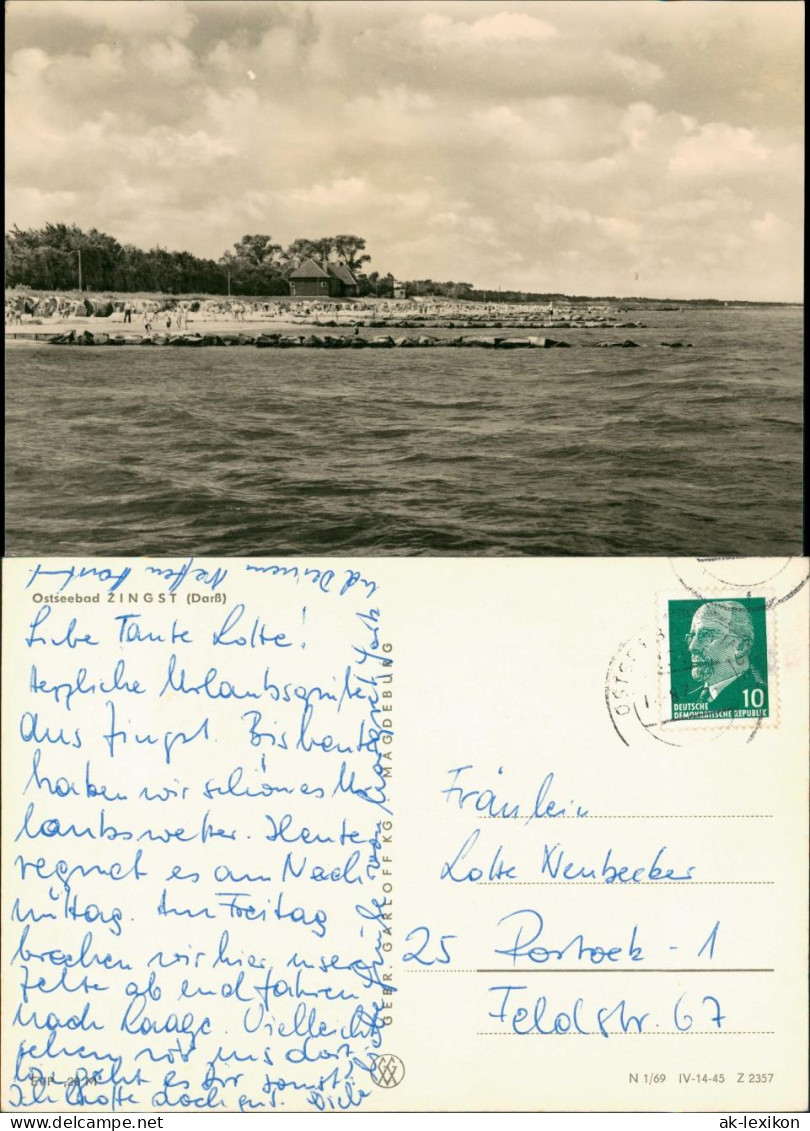 Ostseebad ZINGST (Darß)
Liebe Tante Lotte!
Herzliche Urlaubsgrüße
aus Zingst. Bis heute
haben wir schönes Ur
laubswetter. Heute
regnet es am Nach
mittag. Am Freitag
brechen wir hier unsere
Zelte ab und fahren
nach Laage. Vielleicht
sehen wir uns dort,
geht es Dir sonst?
Ich hoffe doch gut. Viele
Grüße von
und Deinem Neffen
EVP
GEBR. GARLOFF KG · MAGDEBURG
DEUTSCHE
DEMOKRATISCHE REPUBLIK
10
Fräulein
Lotte Neubecker
25 Rostock - 1
Feldstr. 67
N 1/69 IV-14-45 Z 2357
ak-lexikon